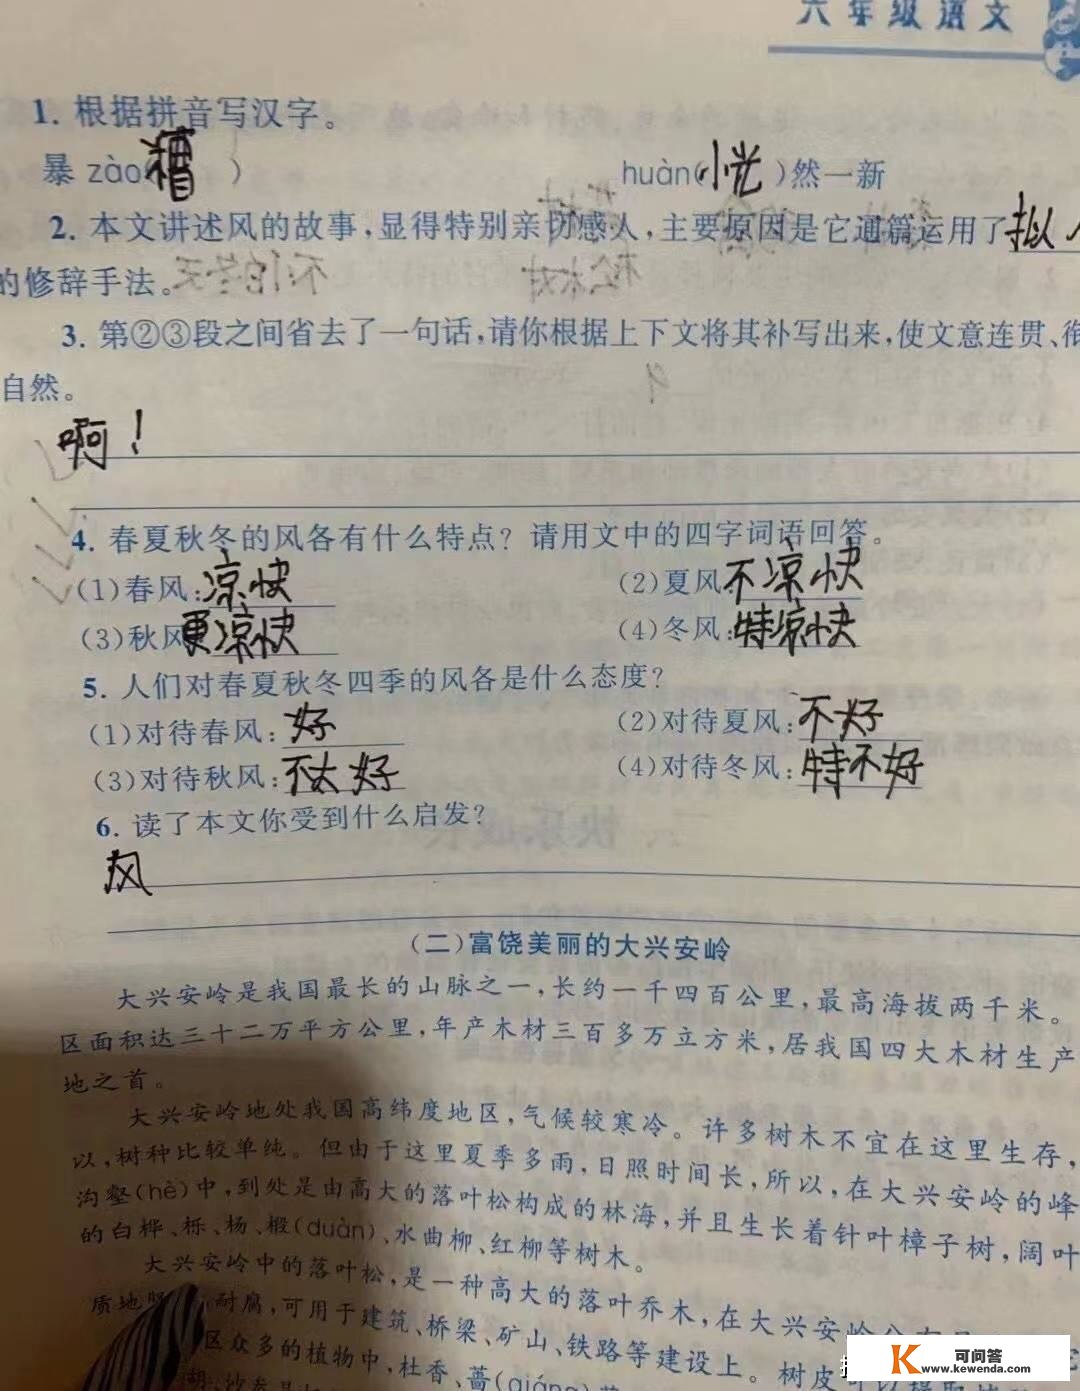 六年级语文
1. 根据拼音写汉字。
暴 zào(糟 )
huàn(恍 )然一新
2. 本文讲述风的故事,显得特别亲切感人,主要原因是它通篇运用了拟人
的修辞手法。
3. 第②③段之间省去了一句话,请你根据上下文将其补写出来,使文意连贯、衔
自然。
啊!
4. 春夏秋冬的风各有什么特点?请用文中的四字词语回答。
(1)春风:凉快
(2)夏风:不凉快
(3)秋风:更凉快
(4)冬风:特凉快
5. 人们对春夏秋冬四季的风各是什么态度?
(1)对待春风:好
(2)对待夏风:不好
(3)对待秋风:不太好
(4)对待冬风:特不好
6. 读了本文你受到什么启发?
风
(二)富饶美丽的大兴安岭
大兴安岭是我国最长的山脉之一,长约一千四百公里,最高海拔两千米。
区面积达三十二万平方公里,年产木材三百多万立方米,居我国四大木材生产
地之首。
大兴安岭地处我国高纬度地区,气候较寒冷。许多树木不宜在这里生存,
以,树种比较单纯。但由于这里夏季多雨,日照时间长,所以,在大兴安岭的峰
沟壑(hè)中,到处是由高大的落叶松构成的林海,并且生长着针叶樟子树,阔叶
的白桦、栎、杨、椴(duàn)、水曲柳、红柳等树木。
大兴安岭中的落叶松,是一种高大的落叶乔木,在大兴安岭
质地坚 耐腐,可用于建筑、桥梁、矿山、铁路等建设上。树皮可以提取
区众多的植物中,杜香、蔷(qiáng)
K 可问答
www.kewenda.com